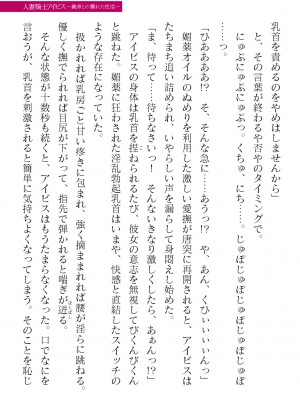 人妻騎士アイビス
乳首を責めるのをやめはしませんから」
と、その言葉が終わるや否やのタイミングで。
にゅぷにゅぷにゅぷっ。くちゅ、にち……。じゅぽじゅぽじゅぽじゅぽ
……っ。
「ひああああ!? そ、そんな急に……あうっ!? や、あん、くひぃぃぃぃっ」
媚薬オイルのぬめりを利用した激しい愛撫が唐突に再開されると、アイビスは
たちまち追い詰められ、いやらしい声を漏らして身悶えし始めた。
「ま、待って……待ちなさいっ! そんないきなり激しくしたら、あぁんっ!?」
アイビスの身体は乳首を捏ねられるたび、彼女の意志を無視してびくんびくん
と跳ねた。媚薬に狂わされた淫乱勃起乳首はいまや、快感と直結したスイッチの
ような存在になっていた。
扱かれれば乳房ごと甘い疼きに包まれ、強く摘ままれれば腰が淫らに跳ねる。
優しく撫でられれば目尻が下がって、指先で弾かれると喘ぎが迸る。
そんな状態が十数秒も続くと、アイビスはもうたまらなくなった。口でなにを
言おうが、乳首を刺激されると簡単に気持ちよくなってしまう。そのことを恥じ